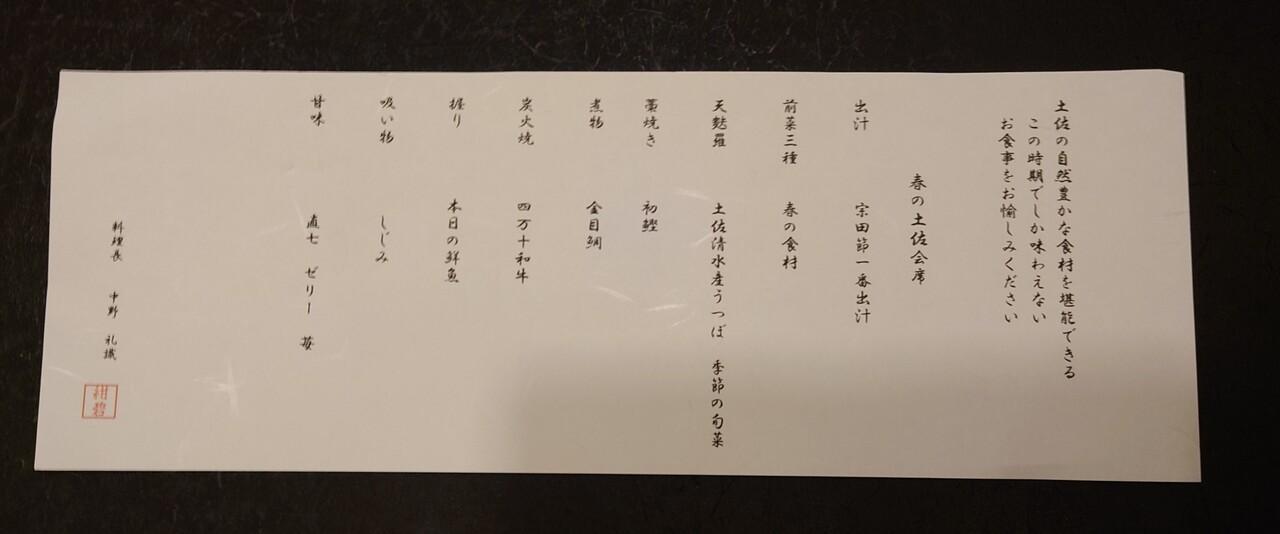 土佐の自然豊かな食材を堪能できる
この時期でしか味わえない
お食事をお愉しみください
春の土佐会席
出汁 宗田節一番出汁
前菜三種 春の食材
天麩羅 土佐清水産うつぼ 季節の旬菜
藁焼き 初鰹
煮物 金目鯛
炭火焼 四万十和牛
握り 本日の鮮魚
吸い物 しじみ
甘味 直七 ゼリー 苺
料理長 中野 礼識
紺碧